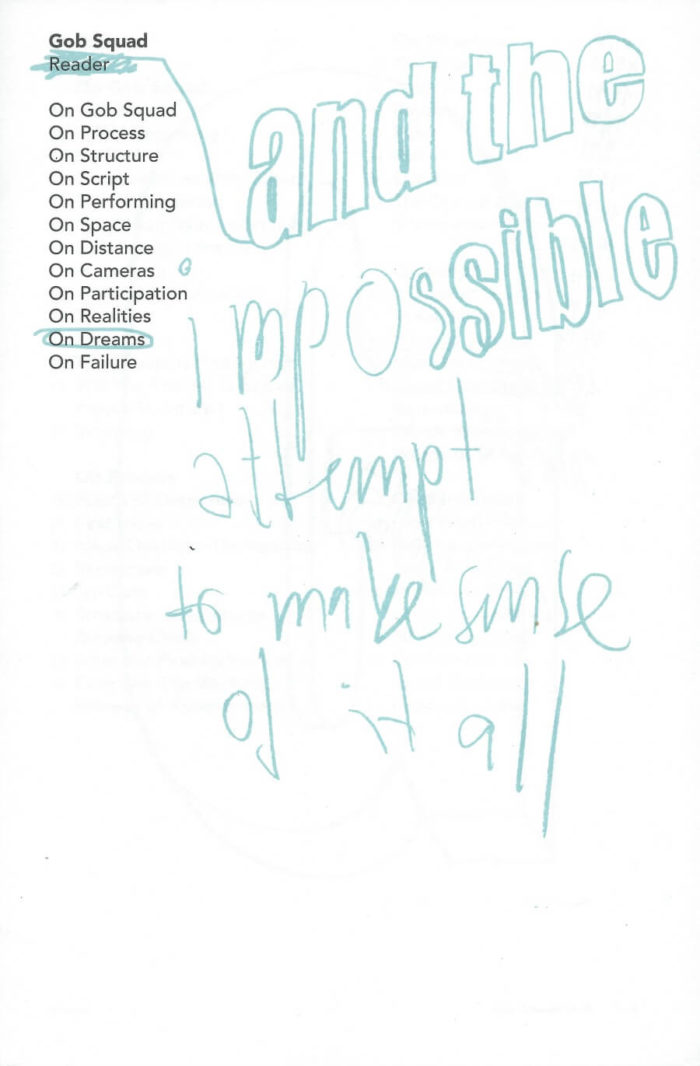 Gob Squad
Reader
and the
impossible
attempt
to make sense
of it all
On Gob Squad
On Process
On Structure
On Script
On Performing
On Space
On Distance
On Cameras
On Participation
On Realities
On Dreams
On Failure